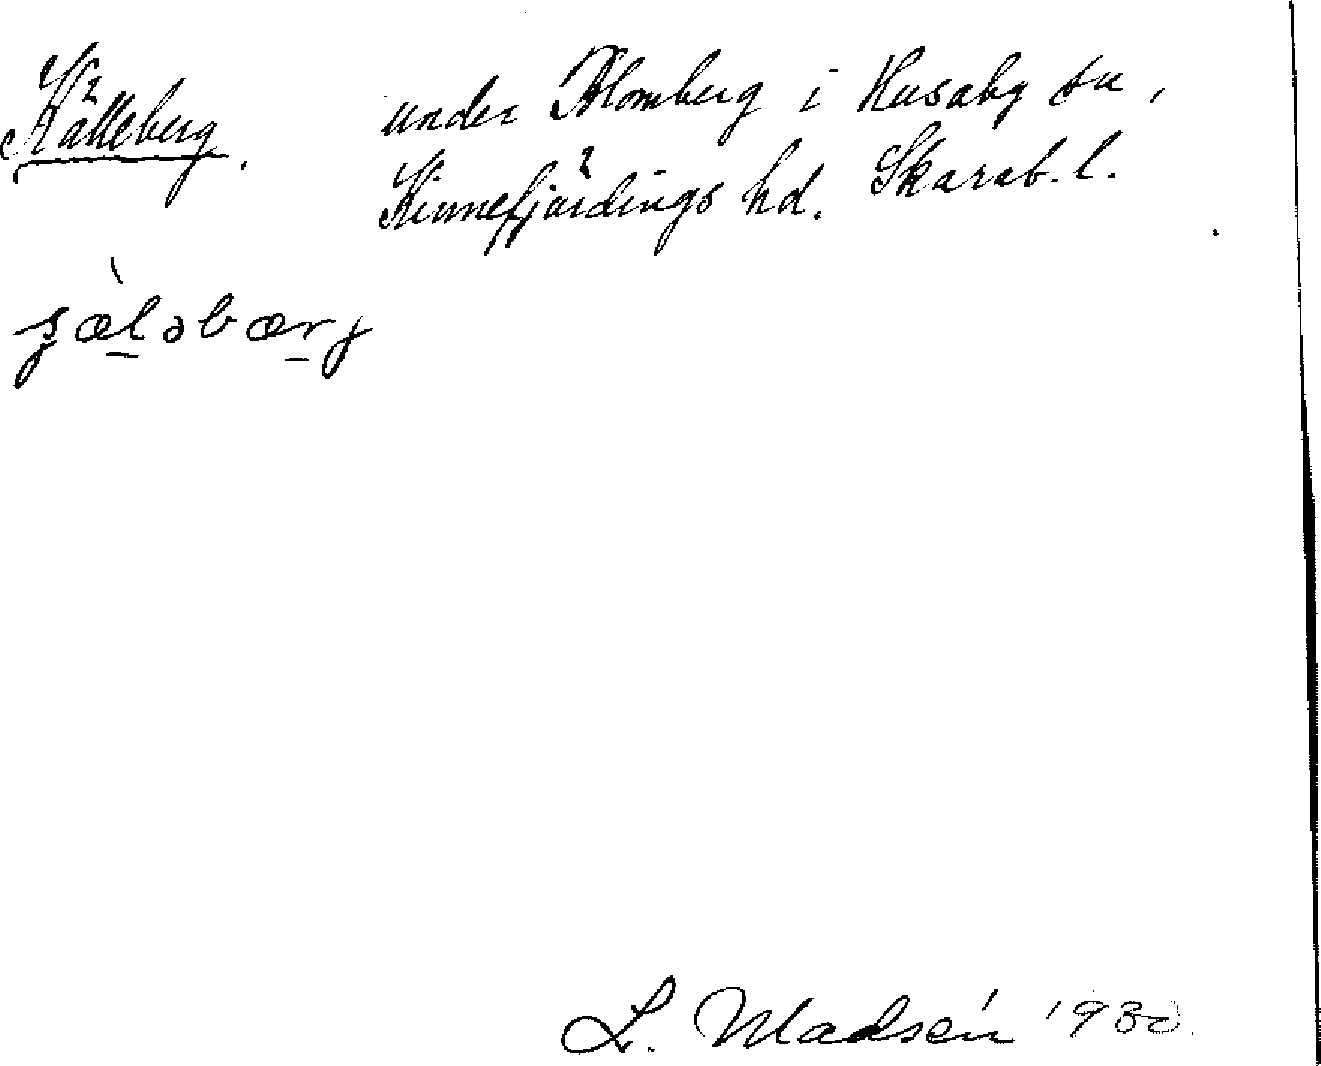 Källeberg. under Blomberg i Husaby sn,
Kinnefjärdings hd. Skarab. l.
L. Madsén 1930.